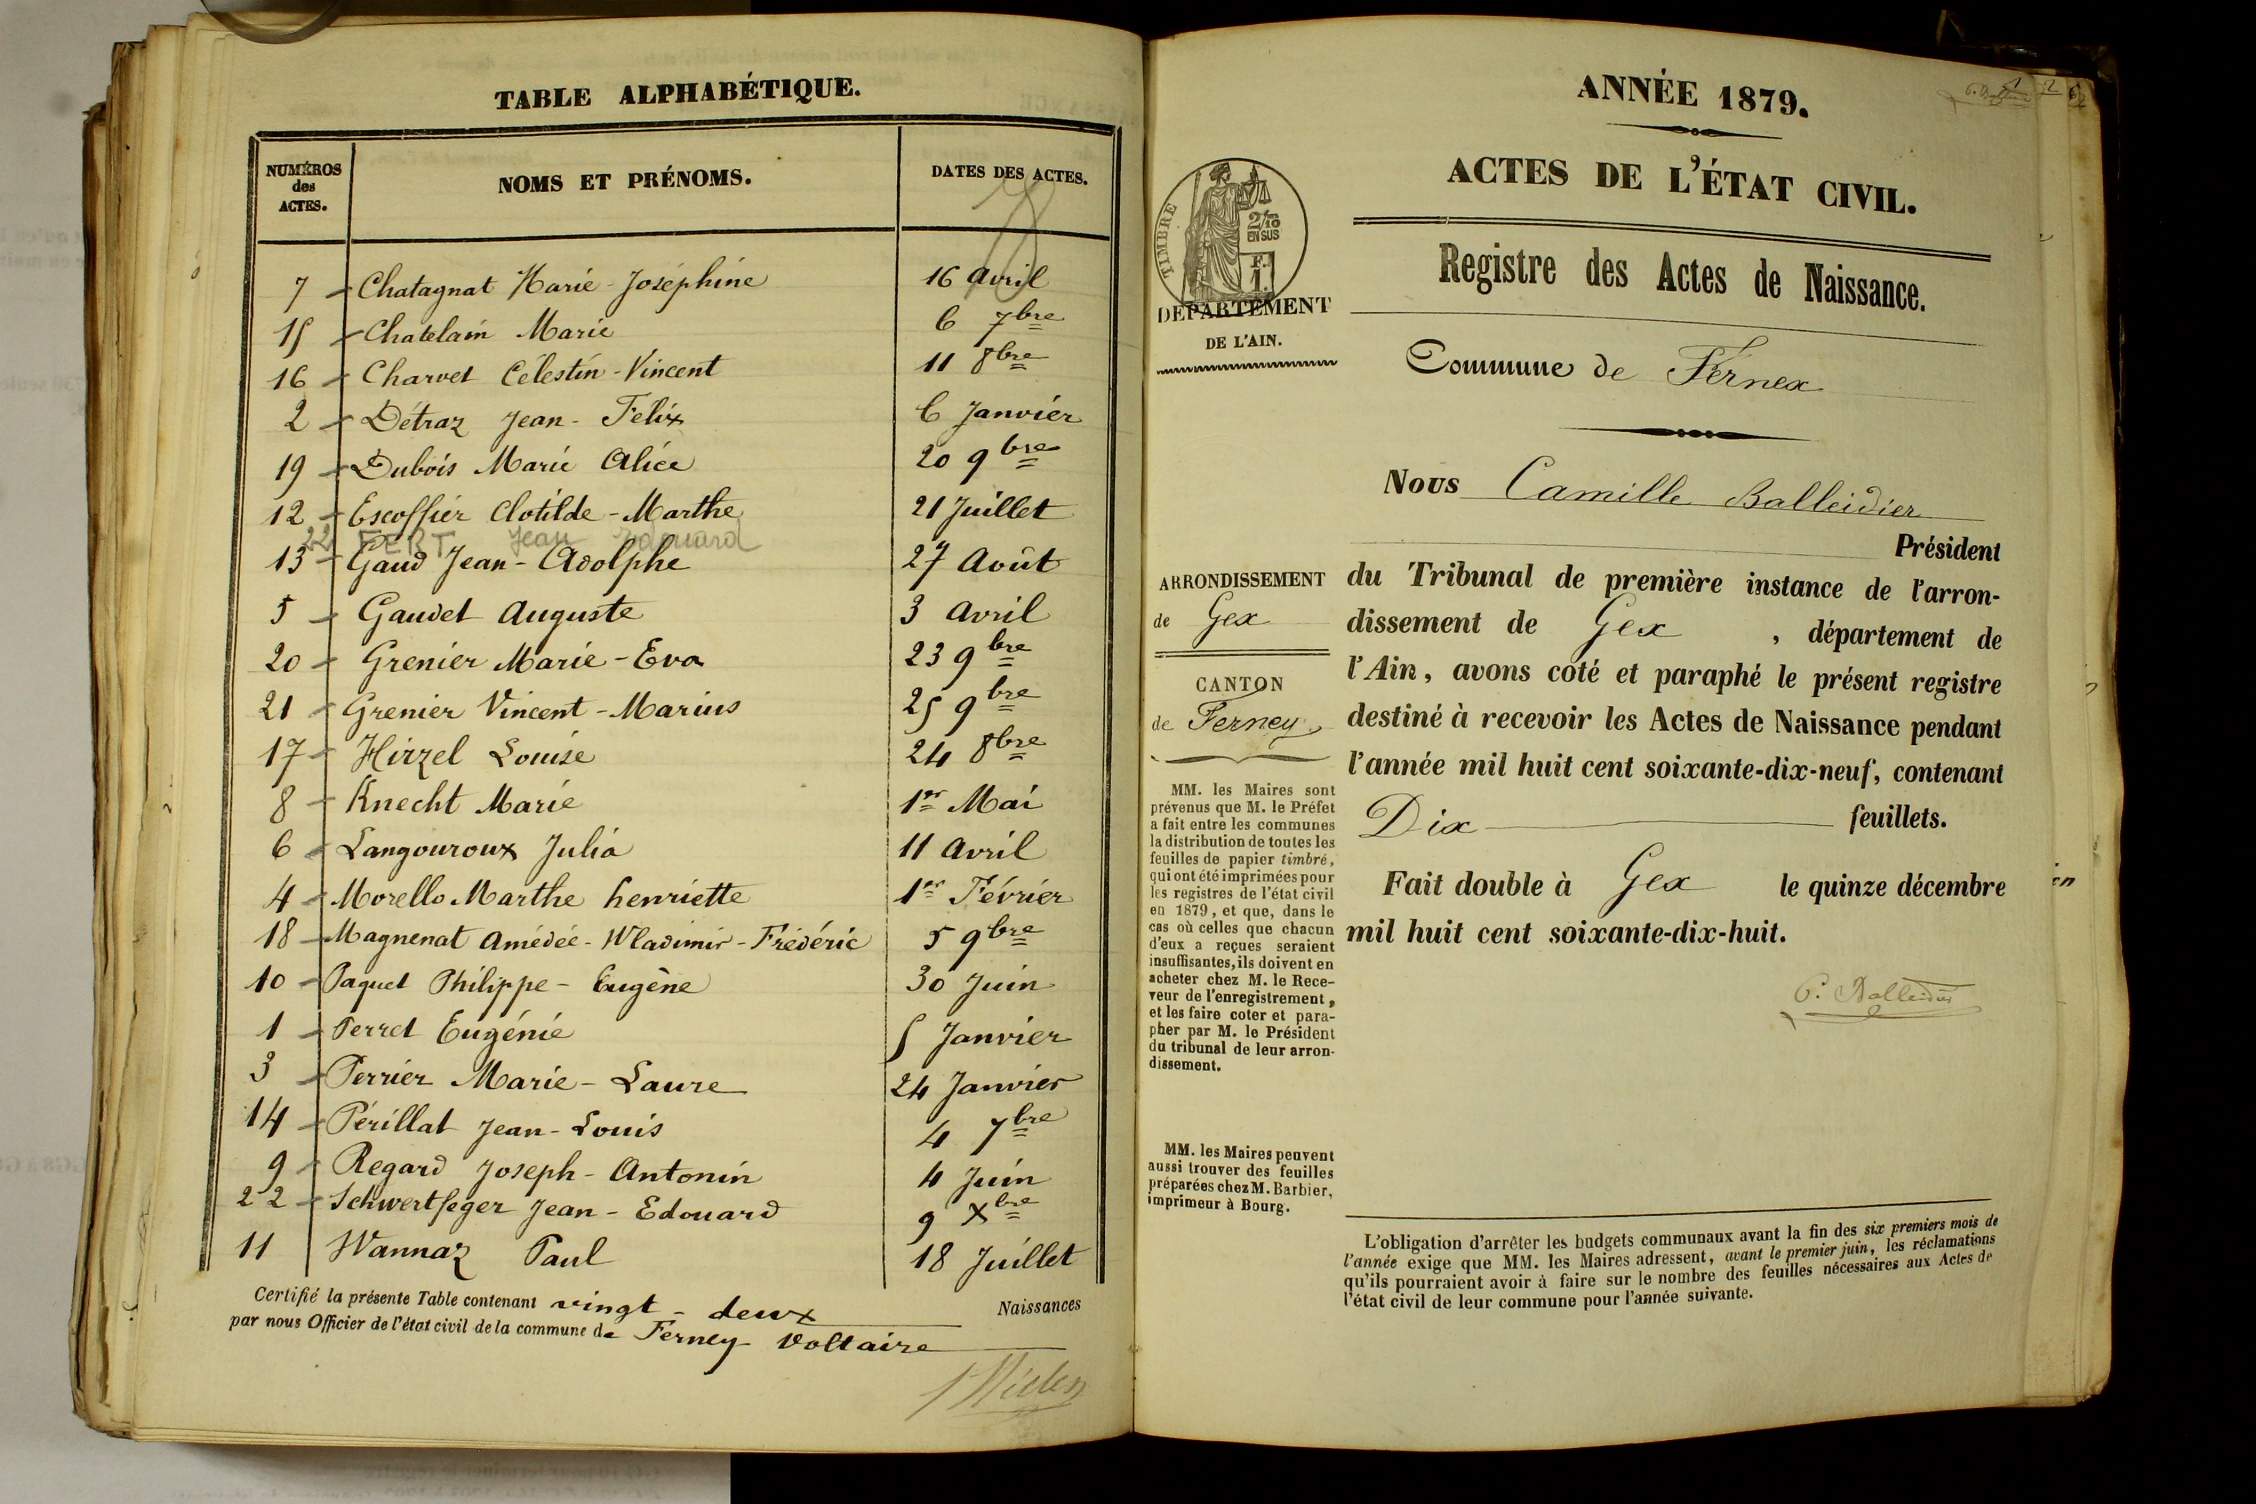 TABLE ALPHABÉTIQUE.
NUMÉROS des ACTES. NOMS ET PRÉNOMS. DATES DES ACTES.
78
7 Chatagnat Marie-Joséphine 16 avril
15 Chatelain Marie 6 7bre
16 Charvet Célestin-Vincent 11 8bre
2 Détraz Jean-Félix 6 Janvier
19 Dubois Marie Alice 20 9bre
12 Escoffier Clotilde-Marthe 21 Juillet
22 FERT Jean Edouard
13 Gaud Jean-Adolphe 27 Août
5 Gaudet Auguste 3 avril
20 Grenier Marie-Eva 23 9bre
21 Grenier Vincent-Marius 25 9bre
17 Hirzel Louise 24 8bre
8 Knecht Marie 1er Mai
6 Langouroux Julia 11 avril
4 Morello Marthe henriette 1er Février
18 Magnenat Amédée-Wladimir-Frédéric 5 9bre
10 Paquet Philippe-Eugène 30 Juin
1 Perret Eugénie 5 Janvier
3 Perrier Marie-Laure 24 Janvier
14 Périllat Jean-Louis 4 7bre
9 Regard Joseph-Antonin 4 Juin
22 Schwertfeger Jean-Edouard 9 Xbre
11 Wannaz Paul 18 Juillet
Certifié la présente Table contenant vingt-deux Naissances
par nous Officier de l'état civil de la commune de Ferney Voltaire
ANNÉE 1879.
ACTES DE L'ÉTAT CIVIL.
Registre des Actes de Naissance.
TIMBRE
2/10
EN SUS
F.
1.
DÉPARTEMENT
DE L'AIN.
Commune de Fernex
Nous Camille Balleidier
Président
du Tribunal de première instance de l'arron-
dissement de Gex , département de
l'Ain, avons coté et paraphé le présent registre
destiné à recevoir les Actes de Naissance pendant
l'année mil huit cent soixante-dix-neuf, contenant
Dix feuillets.
Fait double à Gex le quinze décembre
mil huit cent soixante-dix-huit.
C. Balleidier
ARRONDISSEMENT
de Gex
CANTON
de Ferney
MM. les Maires sont
prévenus que M. le Préfet
a fait entre les communes
la distribution de toutes les
feuilles de papier timbré,
qui ont été imprimées pour
les registres de l'état civil
en 1879, et que, dans le
cas où celles que chacun
d'eux a reçues seraient
insuffisantes, ils doivent en
acheter chez M. le Rece-
veur de l'enregistrement,
et les faire coter et para-
pher par M. le Président
du tribunal de leur arron-
dissement.
MM. les Maires peuvent
aussi trouver des feuilles
préparées chez M. Barbier,
imprimeur à Bourg.
L'obligation d'arrêter les budgets communaux avant la fin des six premiers mois de
l'année exige que MM. les Maires adressent, avant le premier juin, les réclamations
qu'ils pourraient avoir à faire sur le nombre des feuilles nécessaires aux Actes de
l'état civil de leur commune pour l'année suivante.